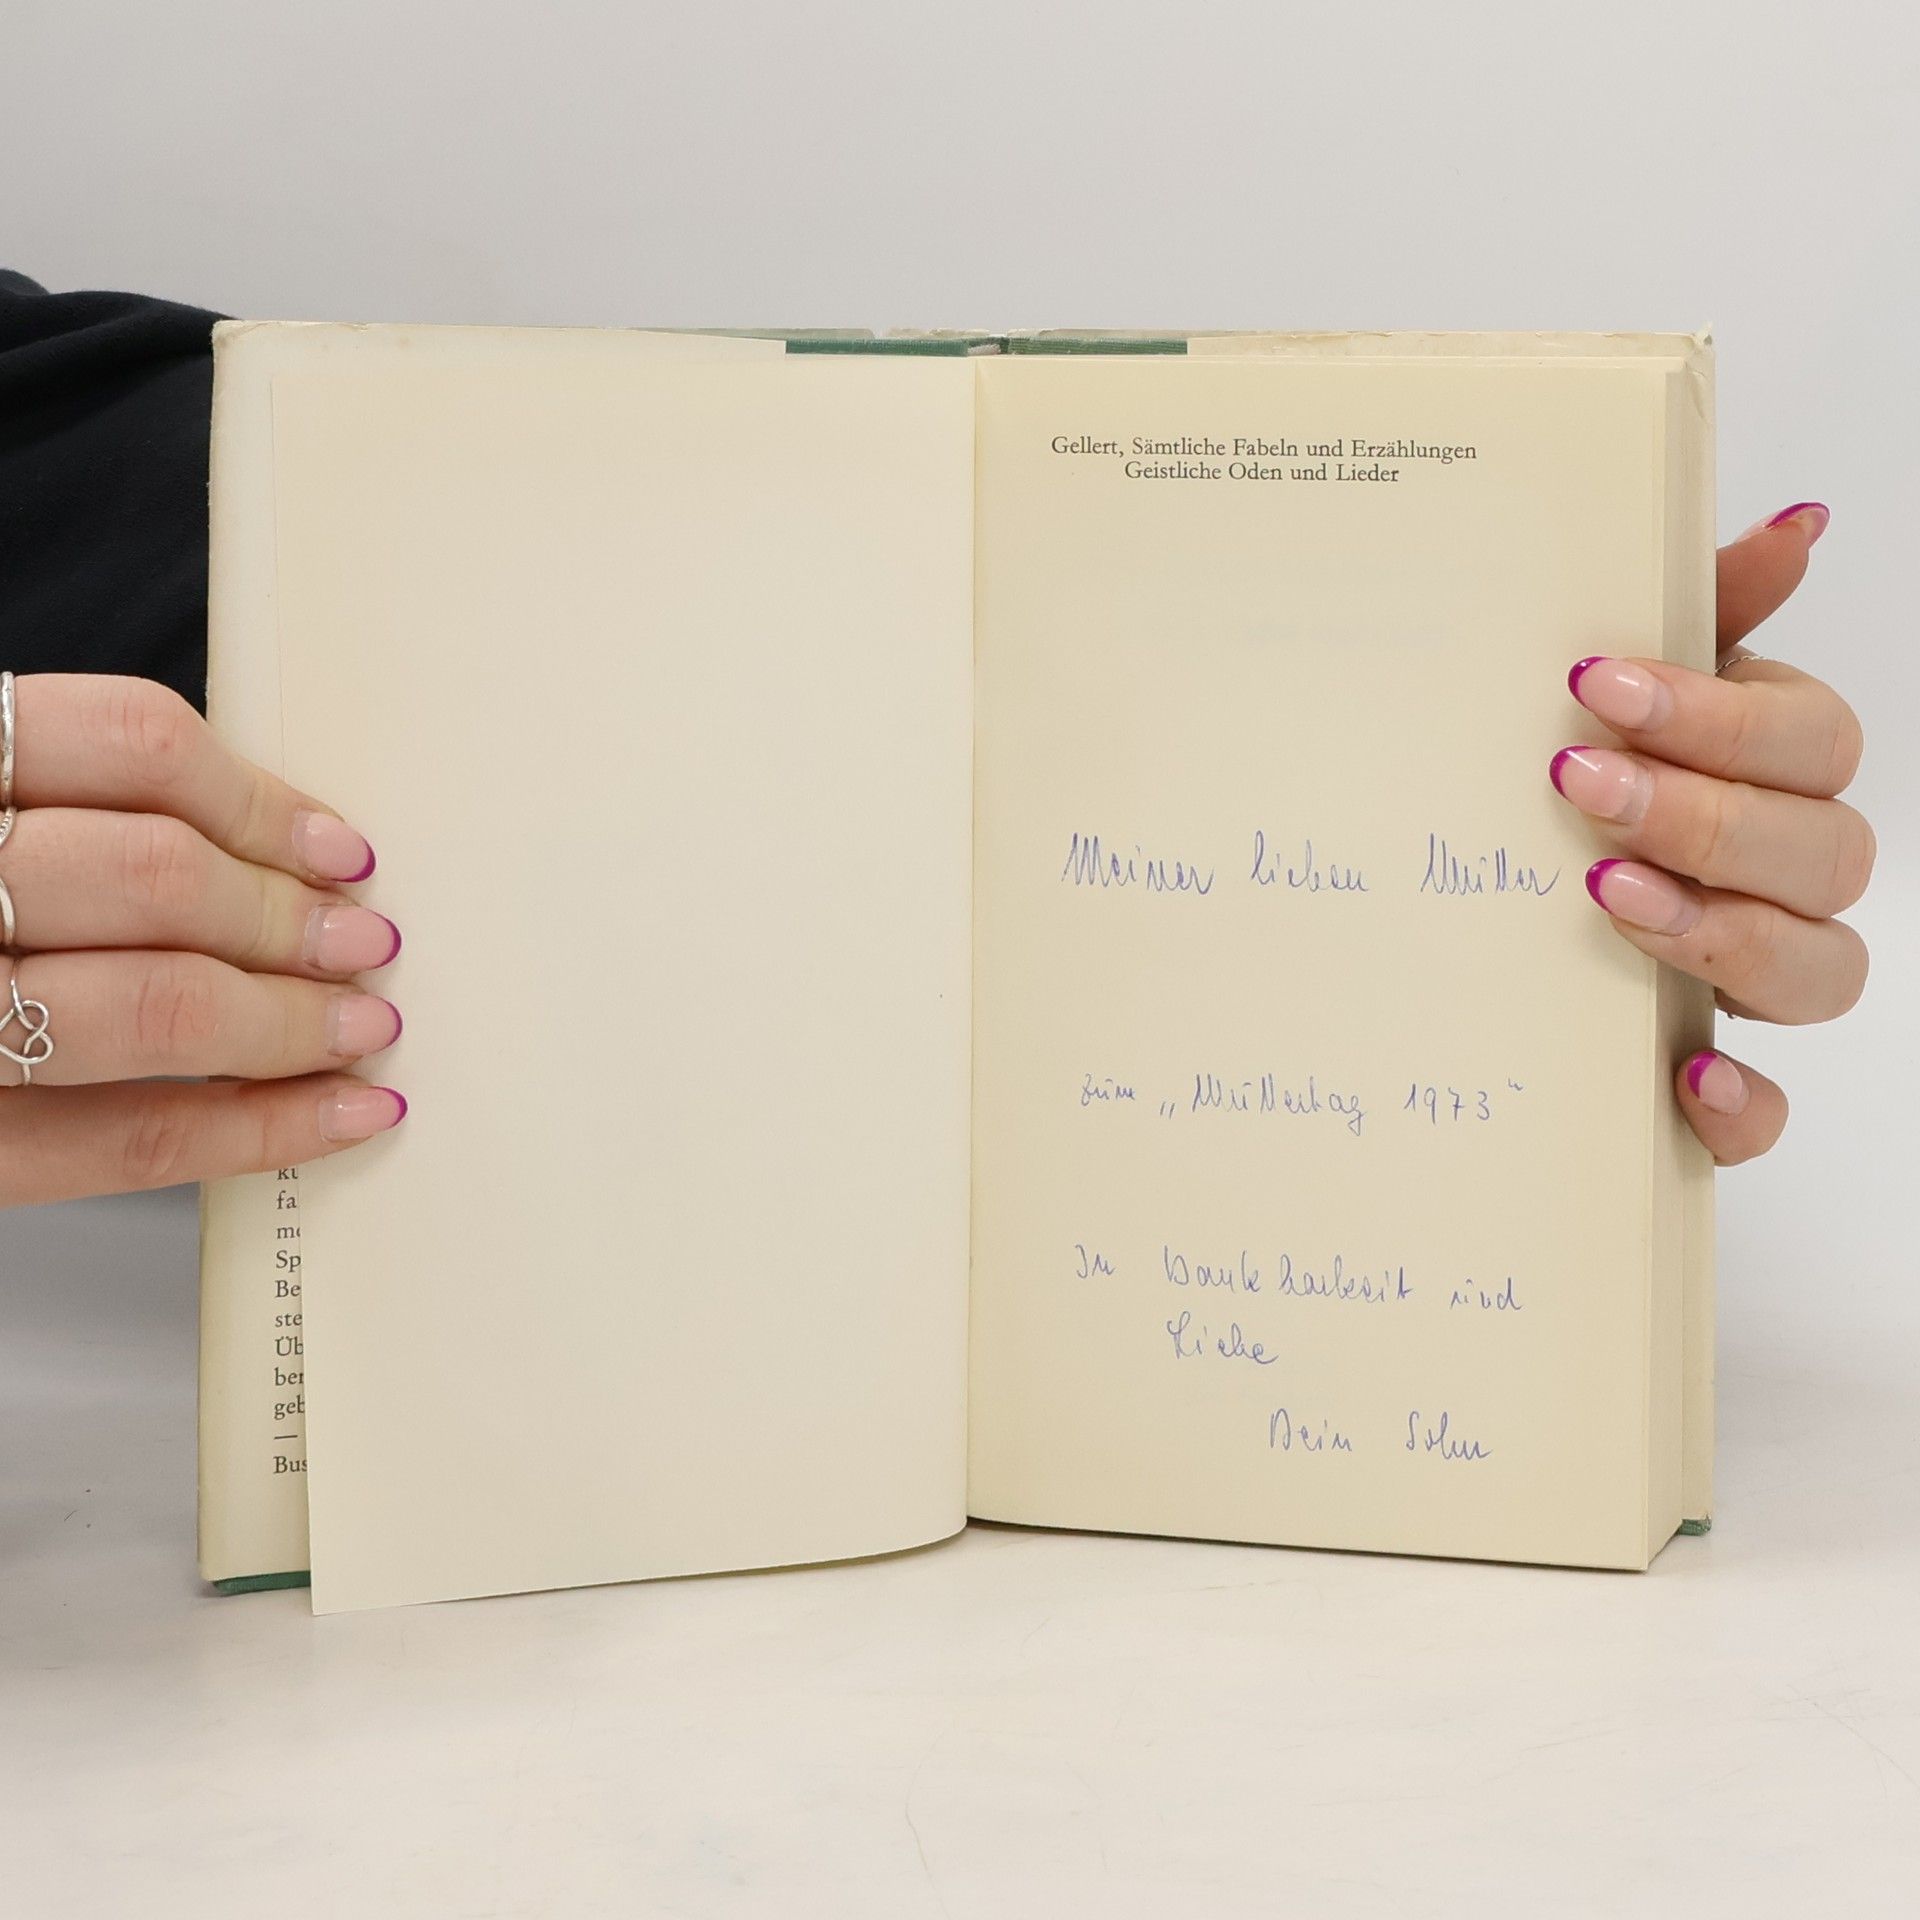 Gellert, Sämtliche Fabeln und Erzählungen
Geistliche Oden und Lieder
Meiner lieben Mutter
zum „Muttertag 1973“
In Dankbarkeit und
Liebe
Dein Sohn
ku
fa
me
Sp
Be
ste
Üb
ber
geb
—
Bus